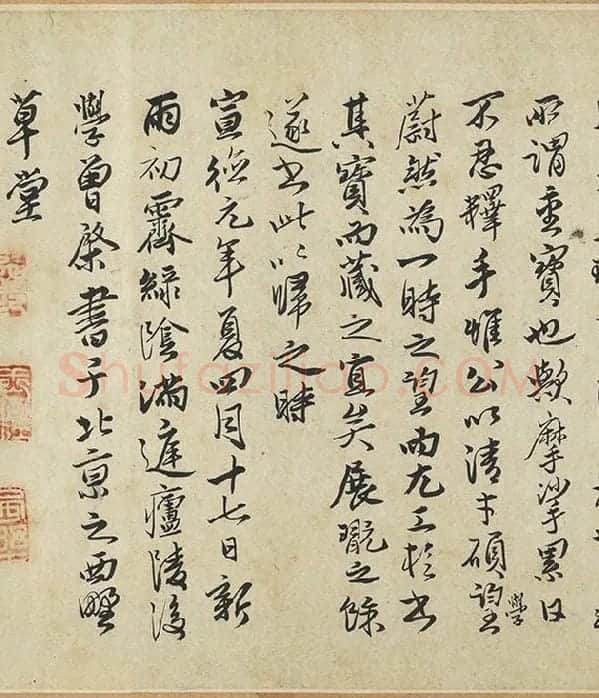 所謂重寶也歟摩挲累日
不忍釋手惟公以清才碩望學
蔚然為一時之望而尤工於書
其寶而藏之宜矣展翫之餘
遂書此以歸之時
宣德元年夏四月十七日新
雨初霽綠陰滿庭廬陵後
學曾棨書于北京之西墅
草堂
Shufaziliao.COM